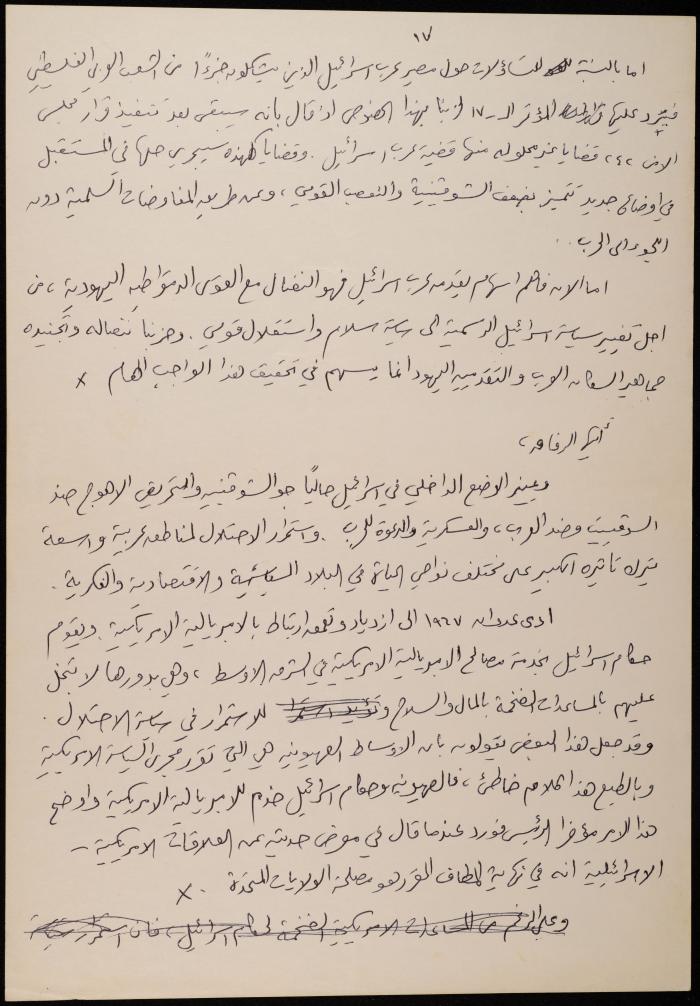 ١٧
اما بالنسبة للتساؤلات حول مصير عرب اسرائيل الذين يشكلون جزءًا من الشعب العربي الفلسطيني
فيرد عليها المؤتمر الـ -١٧ لحزبنا بهذا الخصوص اذ قال بانه سيبقى بعد تنفيذ قرار مجلس
الامن ٢٤٢ قضايا غير محلولة منها قضية عرب اسرائيل. وقضايا كهذه سيجري حلها في المستقبل
في اوضاع جديدة تتميز بضعف الشوفينية والتعصب القومي، وعن طريق المفاوضات السلمية دون
اللجوء الى الحرب..
اما الان فاهم اسهام يقدمه عرب اسرائيل فهو النضال مع القوى الدمقراطية اليهودية، من
اجل تغيير سياسة اسرائيل الرسمية الى سياسة سلام واستقلال قومي. وحزبنا بنضاله وتجنيده
جماهير السكان العرب والتقدميين اليهود انما يسهم في تحقيق هذا الواجب الهام x
أيها الرفاق،
ويميز الوضع الداخلي في اسرائيل حاليًا جو الشوفينية والتحريض الاهوج ضد
السوفييت وضد العرب، والعسكرية والدعوة للحرب. واستمرار الاحتلال لمناطق عربية واسعة
يترك تأثيره الكبير على مختلف نواحي الحياة في البلاد السياسية والاقتصادية والفكرية.
ادى عدوان ١٩٦٧ الى ازدياد وتعمق ارتباط بالامبريالية الامريكية. ويقوم
حكام اسرائيل بخدمة مصالح الامبريالية الامريكية في الشرق الاوسط، وهي بدورها لا تبخل
عليهم بالمساعدات الضخمة بالمال والسلاح للاستمرار في سياسة الاحتلال.
وقد جعل هذا البعض يقولون بان الاوساط الصهيونية هي التي تقرر مجرى السياسة الامريكية
وبالطبع هذا الكلام خاطئ، فالصهيونية وحكام اسرائيل خدم للامبريالية الامريكية واوضح
هذا الامر مؤخرا الرئيس فورد عندما قال في معرض حديثه عن العلاقات الامريكية –
الاسرائيلية انه في نهاية المطاف المقرر هو مصلحة الولايات المتحدة. x
وعلى الرغم من المساعدات الامريكية الضخمة لحكام اسرائيل، فان استمرار سياسة